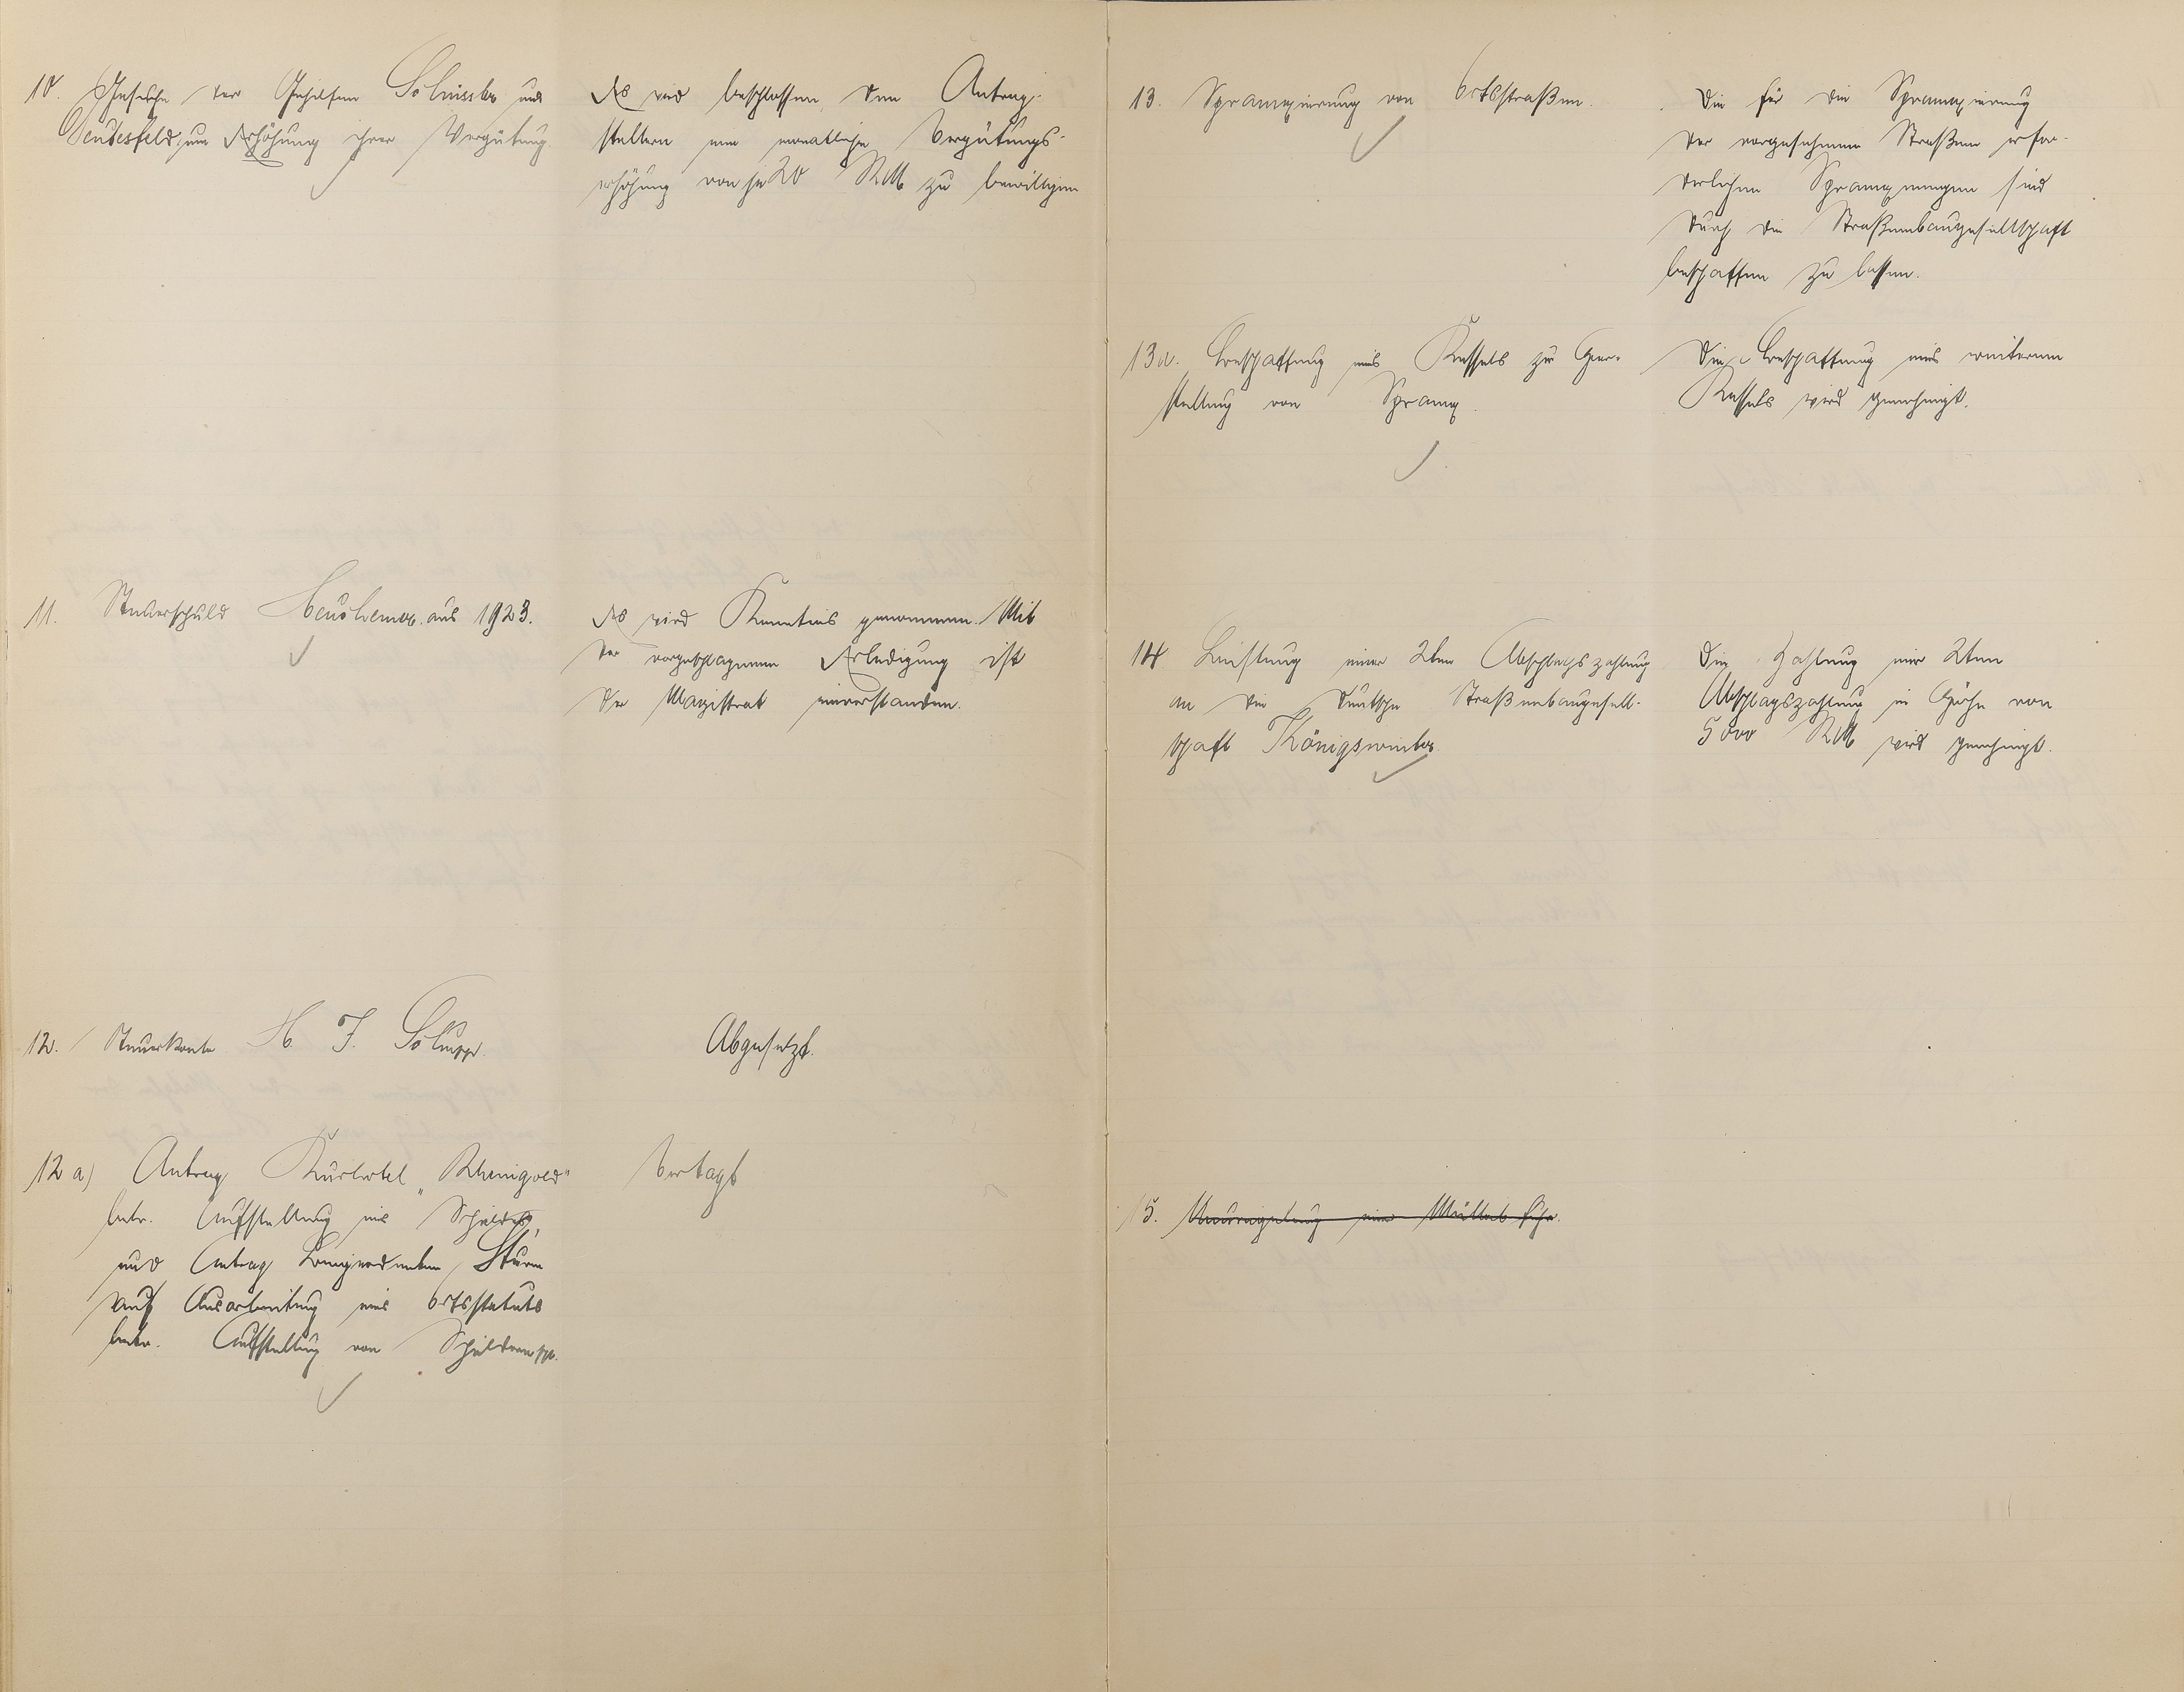 10. Gesuche der Gehilfen Schüssler und
Beudesfeld, um Erhöhung ihrer Vergütung
Es wird beschlossen, den Antrag-
stellern eine monatliche Vergütungs-
erhöhung von je 20 RM zu bewilligen
11. Steuerschuld aus 1923.
Es wird Kenntnis genommen. Mit
der vorgeschlagenen Erledigung ist
der Magistrat einverstanden.
12. Steuerkonto H. J. Schupp.
Abgesetzt.
12 a) Antrag Kurhotel „Rheingold"
betr. Aufstellung eines Schildes,
und Antrag Beigeordneten Sturm
auf Ausarbeitung eines Ortsstatuts
betr. Aufstellung von Schildern pp.
Vertagt
13. Spramexierung von Ortsstraßen.
Die für die Spramexierung
der vorgesehenen Straßen erfor-
derlichen Spramexmengen sind
durch die Straßenbaugesellschaft
beschaffen zu lassen.
13a. Beschaffung eines Kessels zur Her-
stellung von Spramex.
Die Beschaffung eines weiteren
Kessels wird genehmigt.
14 Leistung einer 2ten Abschlagszahlung
an die Deutsche Straßenbaugesell-
schaft Königswinter.
Die Zahlung einer 2ten
Abschlagszahlung in Höhe von
5000 RM wird genehmigt.
15. Neuregelung einer